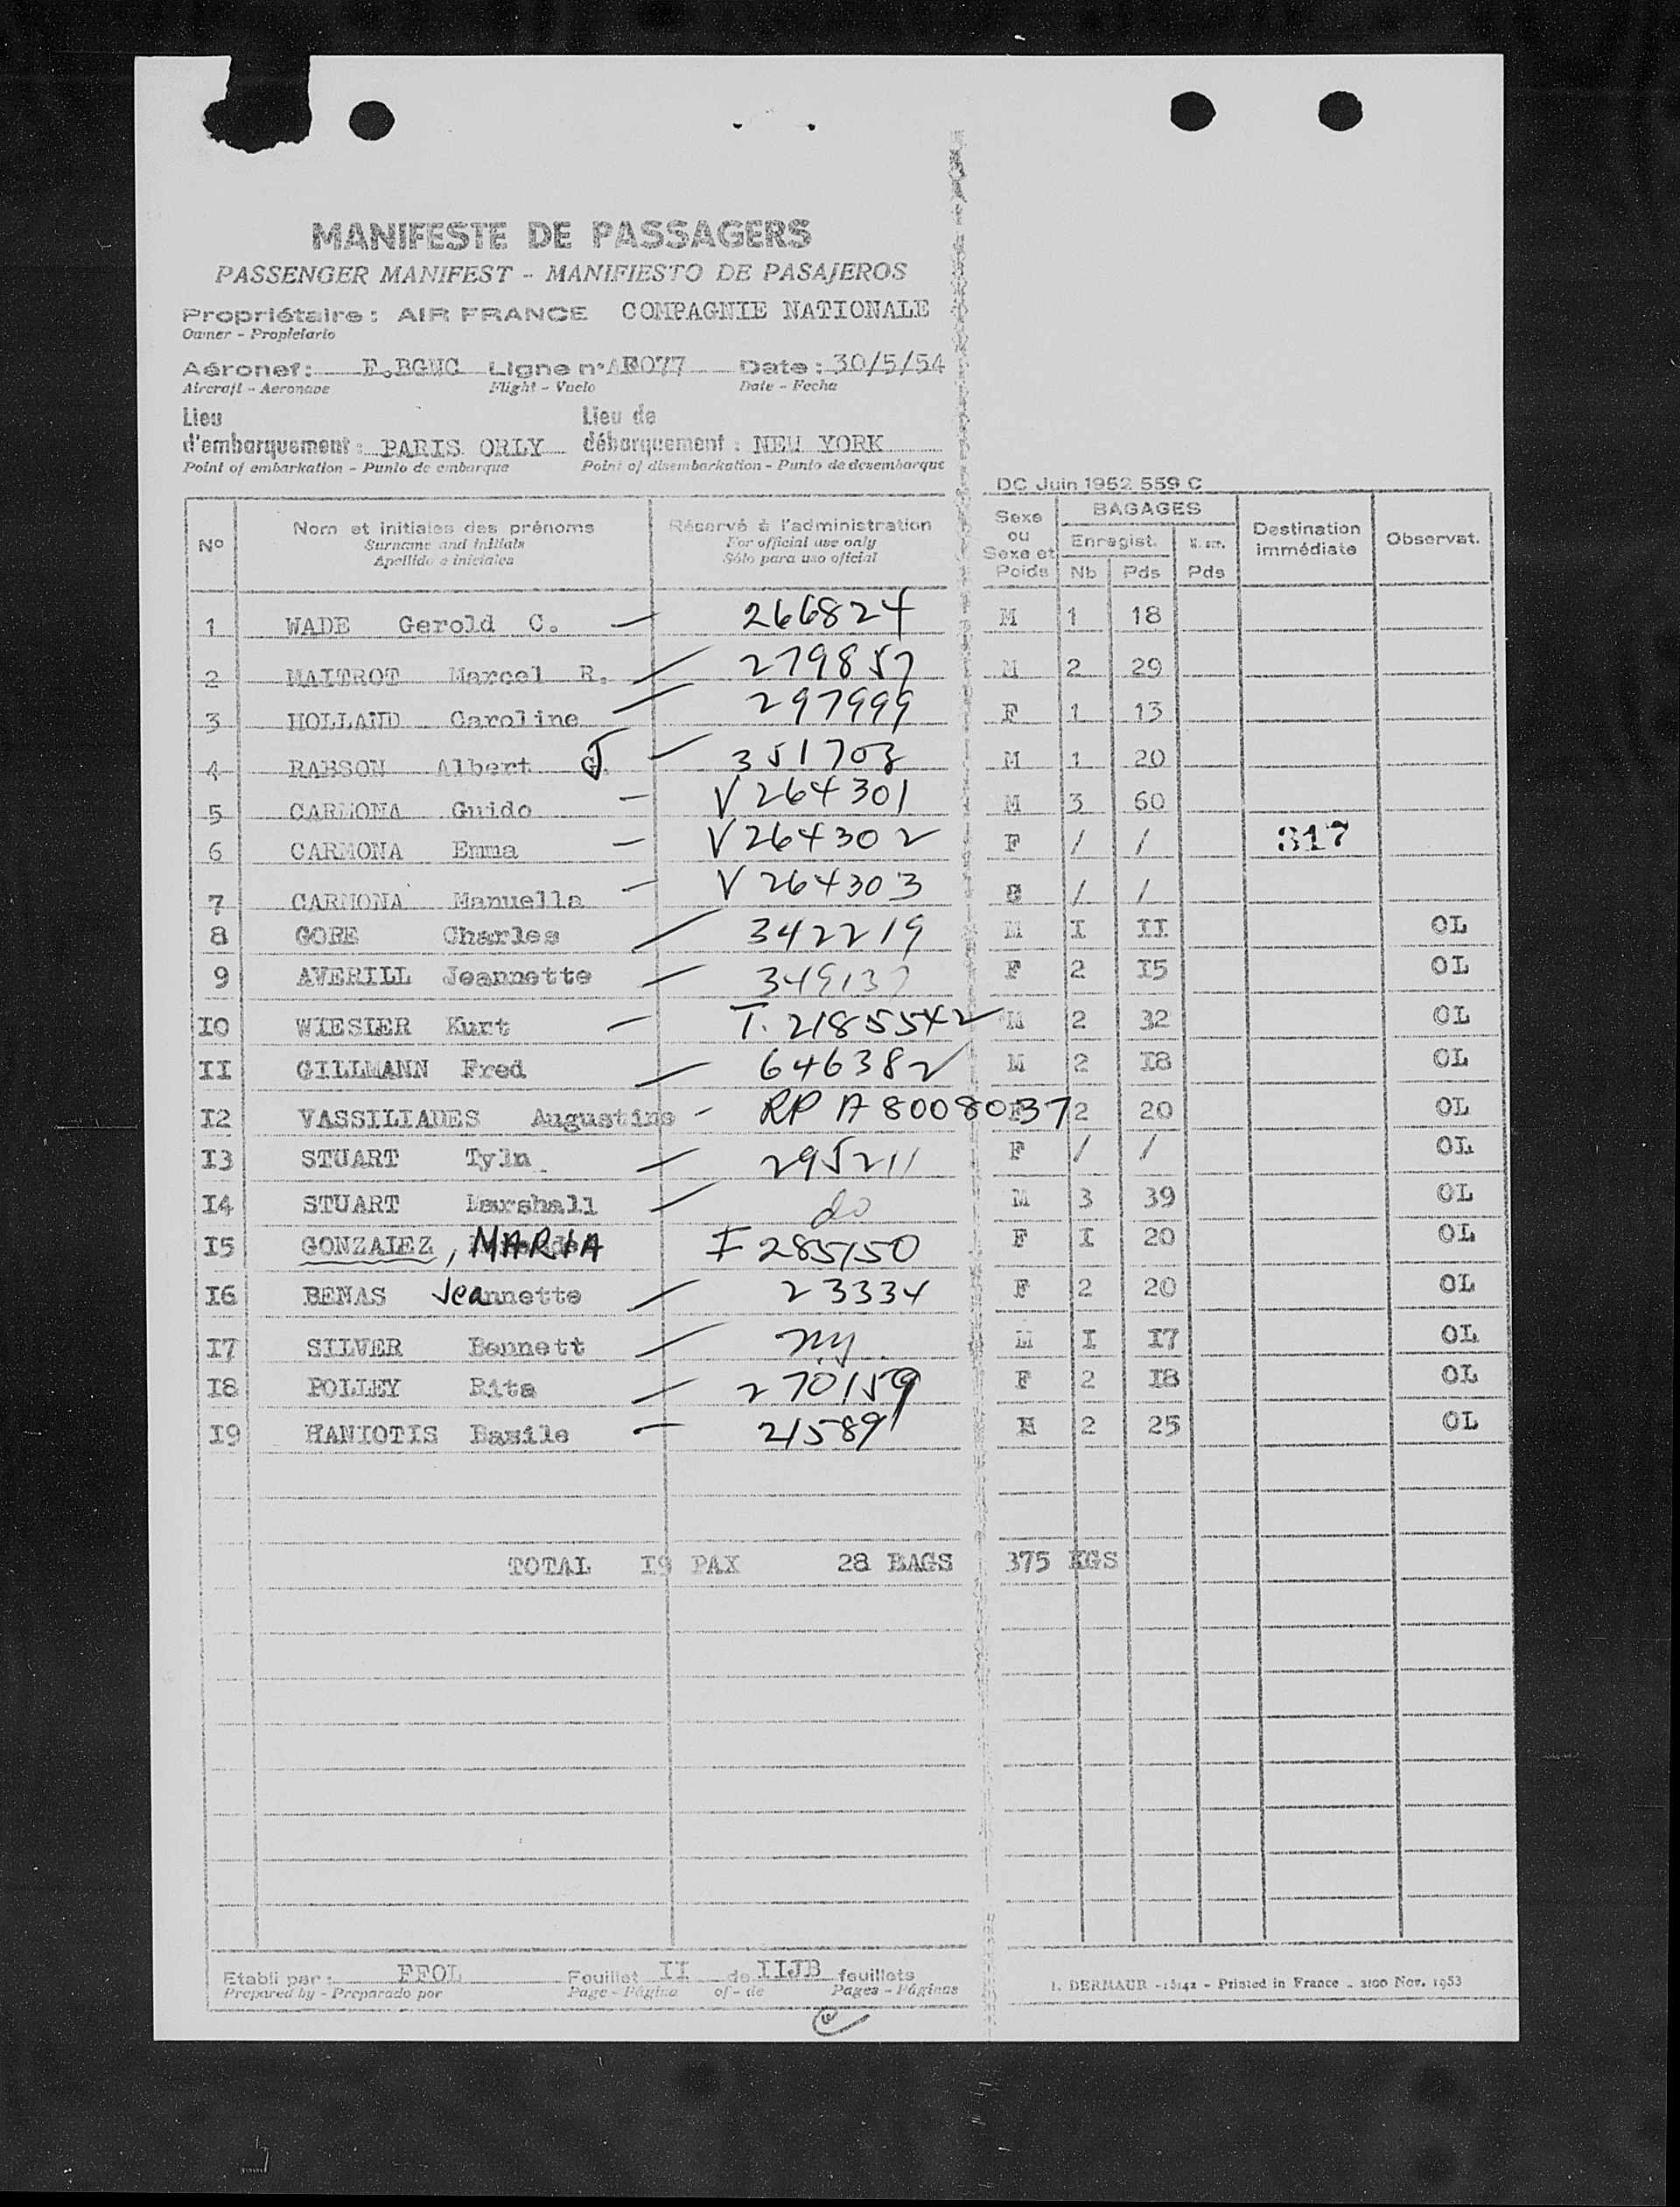 MANIFESTE DE PASSAGERS
PASSENGER MANIFEST - MANIFIESTO DE PASAJEROS
Propriétaire : AIR FRANCE COMPAGNIE NATIONALE
Owner - Propietario
Aéronef : F.BGNC Ligne n° AF077 Date : 30/5/54
Aircraft - Aeronave Flight - Vuelo Date - Fecha
Lieu Lieu de
d'embarquement : PARIS ORLY débarquement : NEW YORK
Point of embarkation - Punto de embarque Point of disembarkation - Punto de desembarque
DC Juin 1952 559 C
N° Nom et initiales des prénoms Réservé à l'administration Sexe ou Sexe et Poids BAGAGES Destination immédiate Observat.
Surname and initials For official use only Enregist.
Apellido e iniciales Sólo para uso oficial Nb Pds Pds
1 WADE Gerold C. — 266824 M 1 18
2 MAITROT Marcel R. — 279857 M 2 29
3 HOLLAND Caroline — 297999 F 1 13
4 RABSON Albert J — 351708 M 1 20
5 CARMONA Guido — V 264301 M 3 60
6 CARMONA Emma — V 264302 F / / 317
7 CARMONA Manuella — V 264303 / /
8 GORE Charles — 342219 M I II OL
9 AVERILL Jeannette — F 2 I5 OL
I0 WIESLER Kurt — T. 2185542 M 2 32 OL
II GILLMANN Fred — 646382 M 2 I8 OL
I2 VASSILIADES Augustine - RP A8008037 2 20 OL
I3 STUART Tyln — 295211 F / / OL
I4 STUART Marshall — do M 3 39 OL
I5 GONZALEZ, MARIA I 285150 F I 20 OL
I6 BENAS Jeannette — 23334 F 2 20 OL
I7 SILVER Bennett — ny. M I I7 OL
I8 POLLEY Rita — 270159 F 2 I8 OL
I9 HANIOTIS Basile — 21589 2 25 OL
TOTAL I9 PAX 28 BAGS 375 KGS
Etabli par : FFOL Feuillet II de IIJB feuillets
Prepared by - Preparado por Page - Página of - de Pages - Páginas
DERMAUR - 15142 - Printed in France - 2100 Nov. 1953